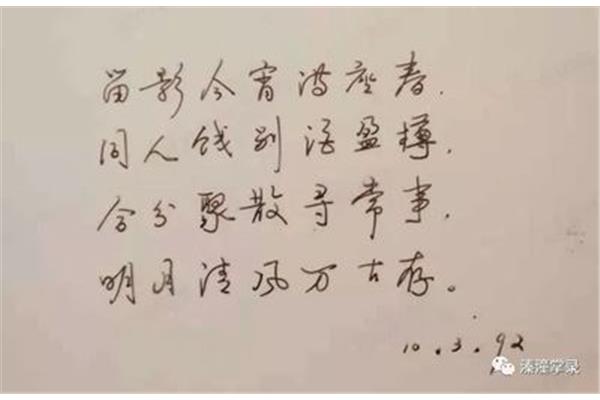 留影今宵满座春.
同人饯别酒盈樽.
合分聚散寻常事.
明月清风万古存。
10.3.92
溱潼学录